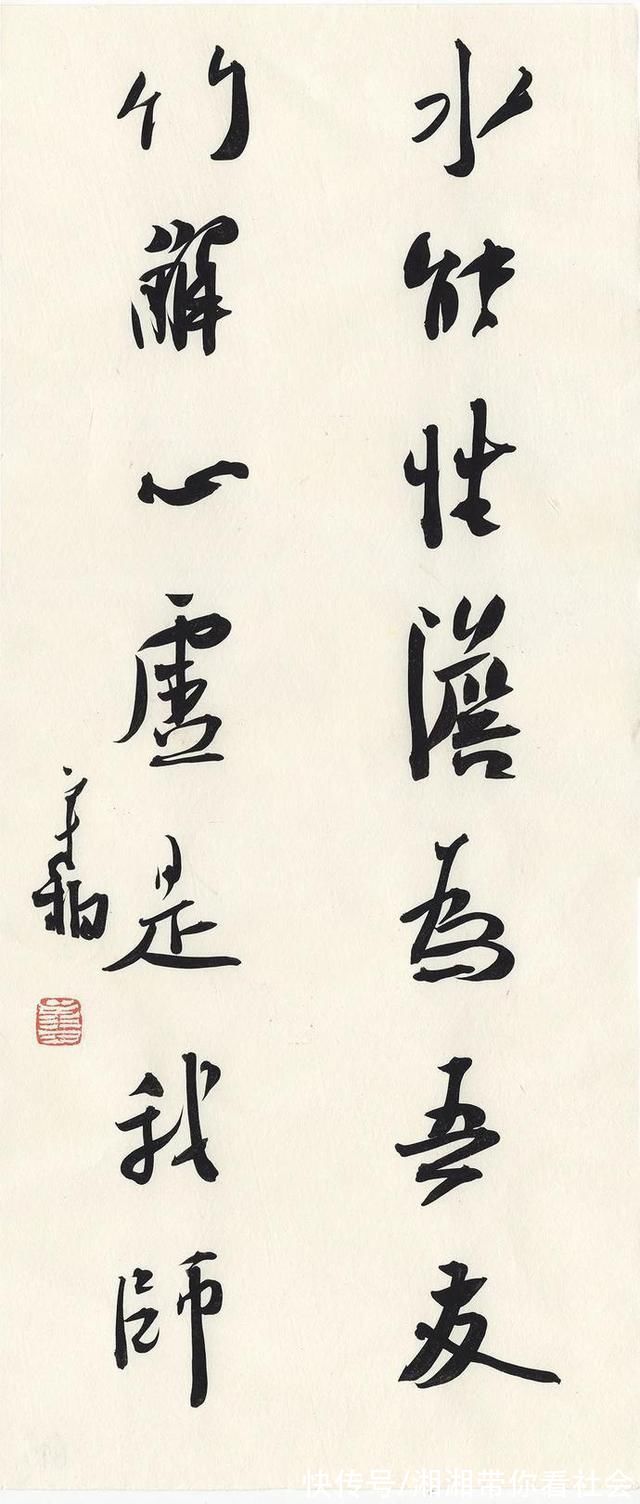 水能性澹為吾友
竹解心虛是我師
快传号/湘湘带你看社会